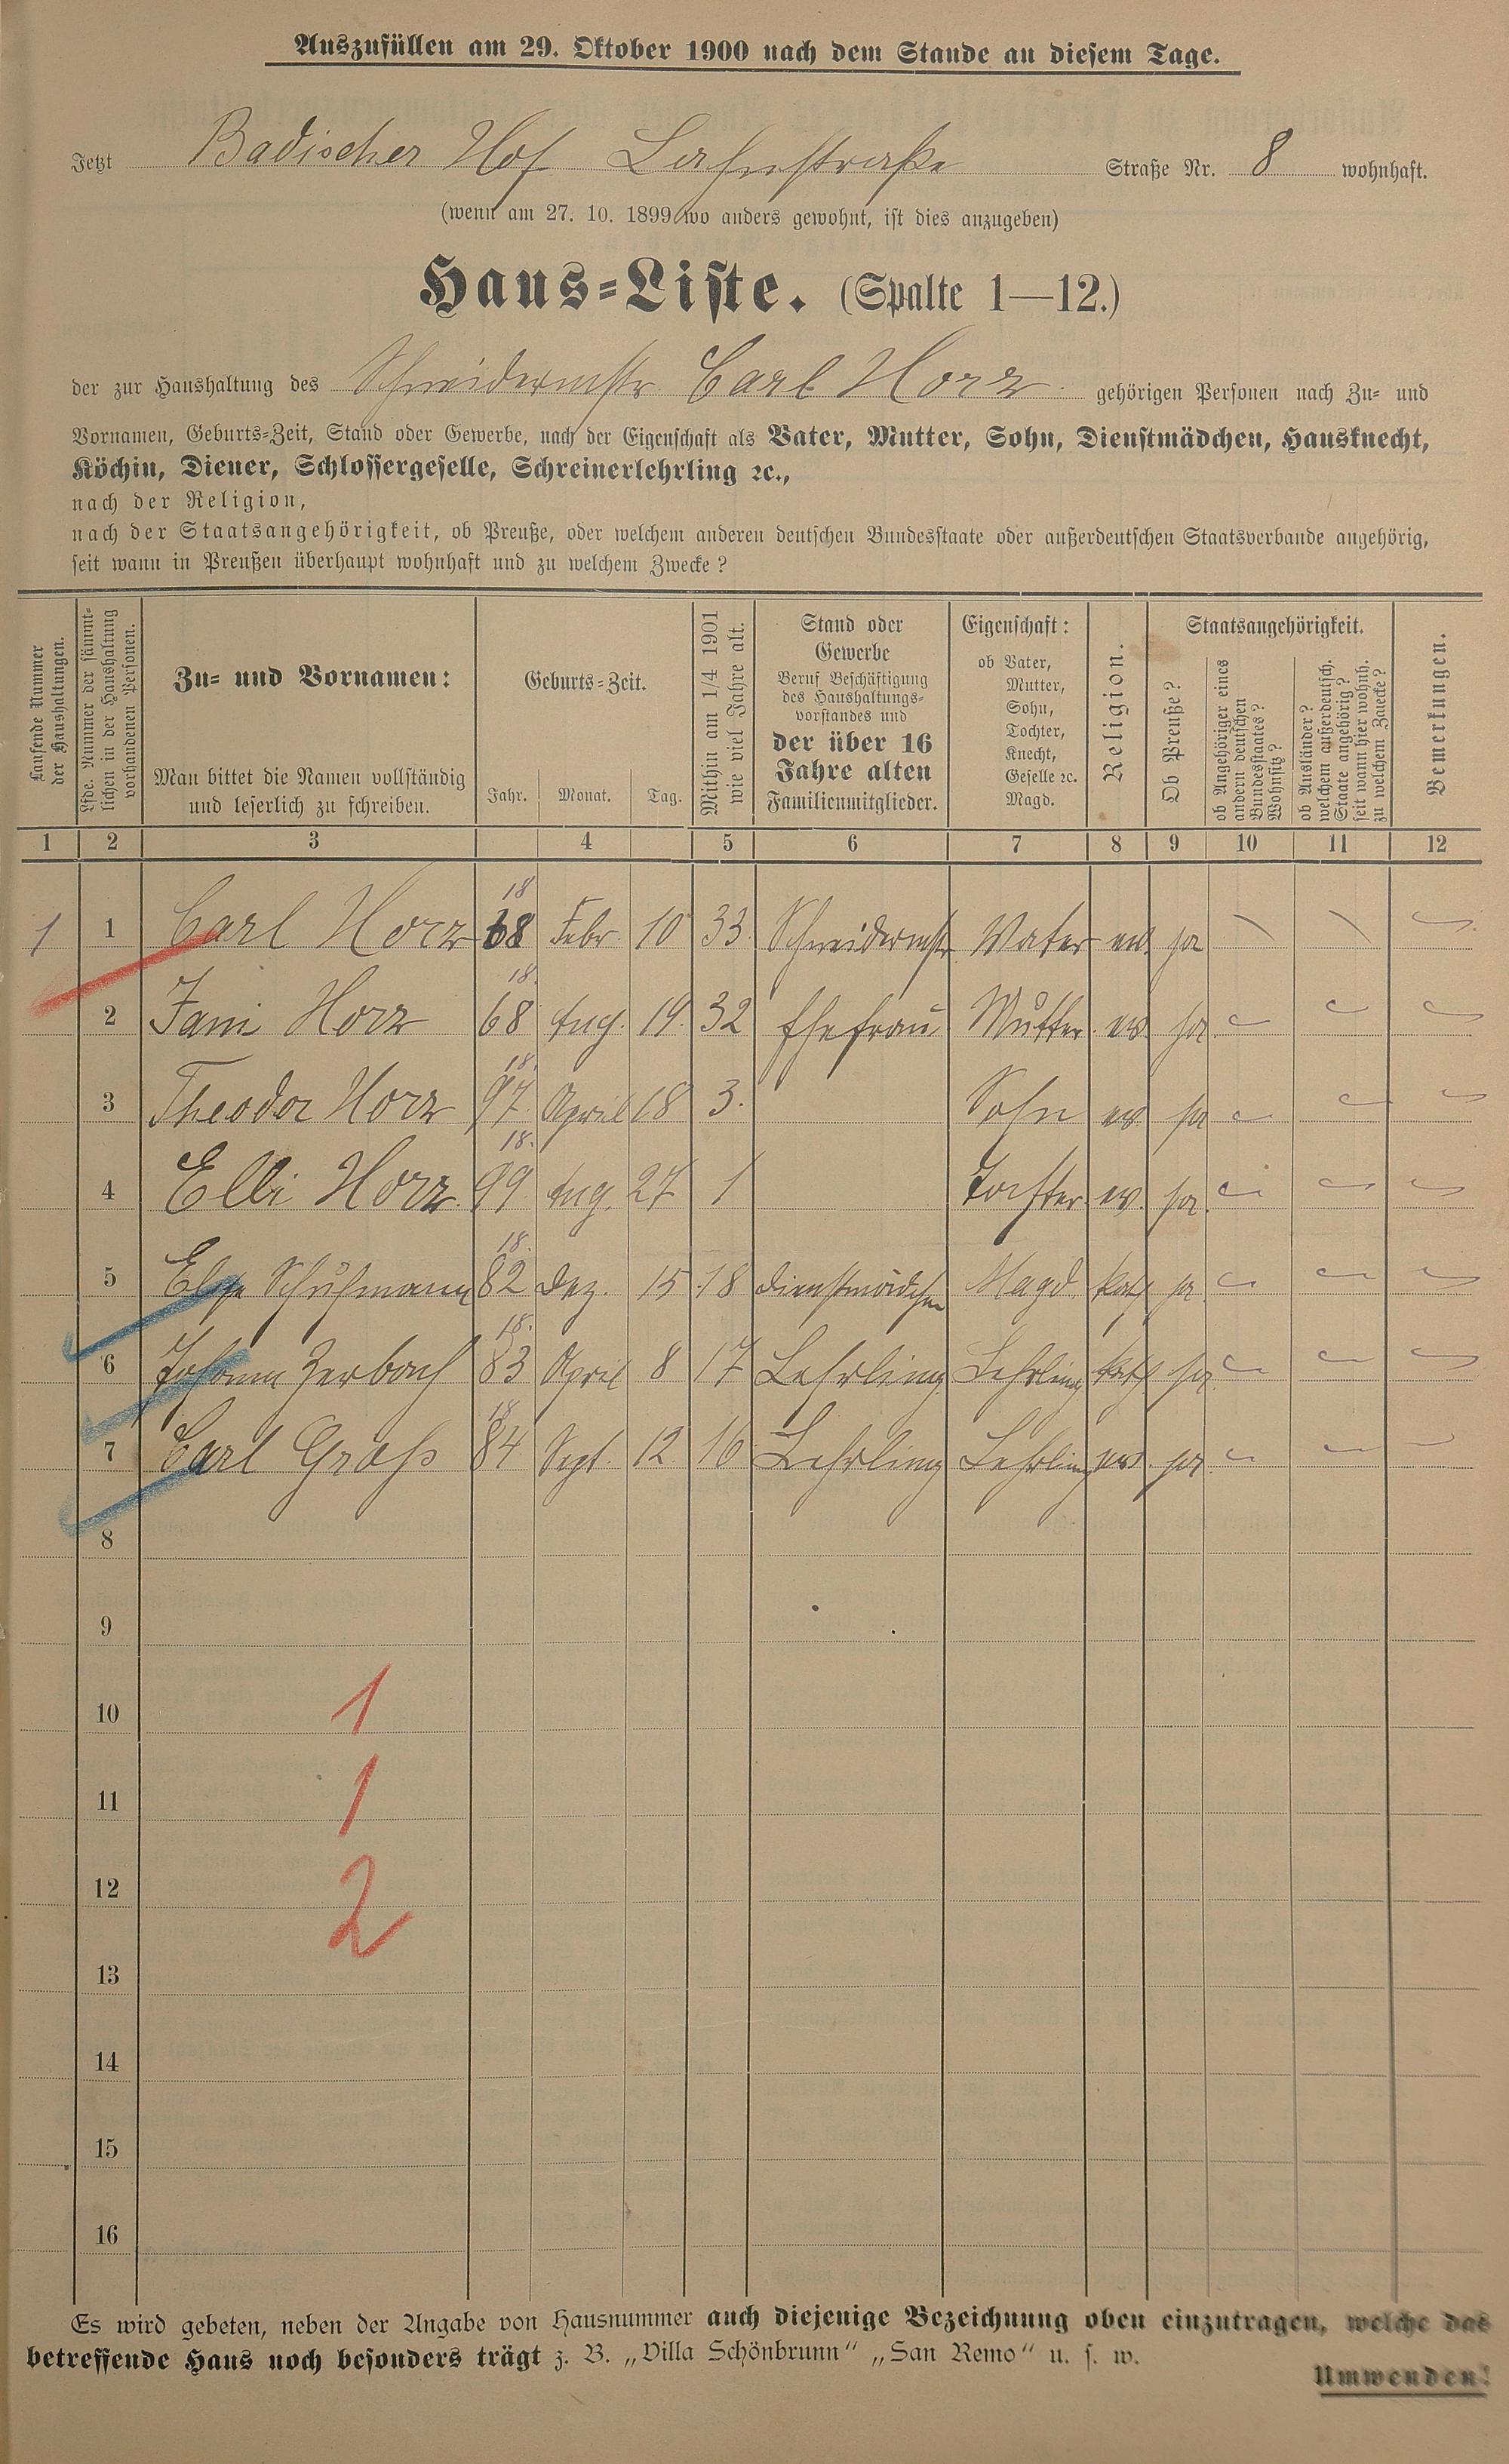 Auszufüllen am 29. Oktober 1900 nach dem Stande an diesem Tage.
Jetzt Badischer Hof Lahnstraße Straße Nr. 8 wohnhaft.
(wenn am 27. 10. 1899 wo anders gewohnt, ist dies anzugeben)
Haus-Liste. (Spalte 1—12.)
der zur Haushaltung des Schneidermstr. Carl Horz gehörigen Personen nach Zu- und
Vornamen, Geburts-Zeit, Stand oder Gewerbe, nach der Eigenschaft als Vater, Mutter, Sohn, Dienstmädchen, Hausknecht,
Köchin, Diener, Schlossergeselle, Schreinerlehrling ꝛc.,
nach der Religion,
nach der Staatsangehörigkeit, ob Preuße, oder welchem anderen deutschen Bundesstaate oder außerdeutschen Staatsverbande angehörig,
seit wann in Preußen überhaupt wohnhaft und zu welchem Zwecke?
Laufende Nummer
der Haushaltungen.
Lfde. Nummer der sämmt-
lichen in der Haushaltung
vorhandenen Personen.
Zu- und Vornamen:
Man bittet die Namen vollständig
und leserlich zu schreiben.
Geburts-Zeit.
Jahr. Monat. Tag.
Mithin am 1/4 1901
wie viel Jahre alt.
Stand oder
Gewerbe
Beruf Beschäftigung
des Haushaltungs-
vorstandes und
der über 16
Jahre alten
Familienmitglieder.
Eigenschaft:
ob Vater,
Mutter,
Sohn,
Tochter,
Knecht,
Geselle ꝛc.
Magd.
Religion.
Staatsangehörigkeit.
Ob Preuße?
ob Angehöriger eines
andern deutschen
Bundesstaates?
Wohnsitz?
ob Ausländer?
welchem außerdeutsch.
Staate angehörig?
seit wann hier wohnh.
zu welchem Zwecke?
Bemerkungen.
1 2 3 4 5 6 7 8 9 10 11 12
1 1 Carl Horz 18 68 Febr. 10 33 Schneidermstr Vater ev. ja
2 Fani Horz 18. 68 Aug. 19. 32 Ehefrau Mutter ev. ja
3 Theodor Horz 18. 97 April 18 3. Sohn ev. ja
4 Elli Horz 18. 99 Aug. 27 1 Tochter ev. ja
5 Else Schuhmann 18. 82 Dez. 15 18 Dienstmädchen Magd kath ja
6 Johann Zerbach 18. 83 April 8 17 Lehrling Lehrling kath ja
7 Carl Groß 18 84 Sept. 12. 16 Lehrling Lehrling ev. ja
8
9
10 1
11 1
12 2
13
14
15
16
Es wird gebeten, neben der Angabe von Hausnummer auch diejenige Bezeichnung oben einzutragen, welche das
betreffende Haus noch besonders trägt z. B. „Villa Schönbrunn“ „San Remo“ u. s. w.
Umwenden!